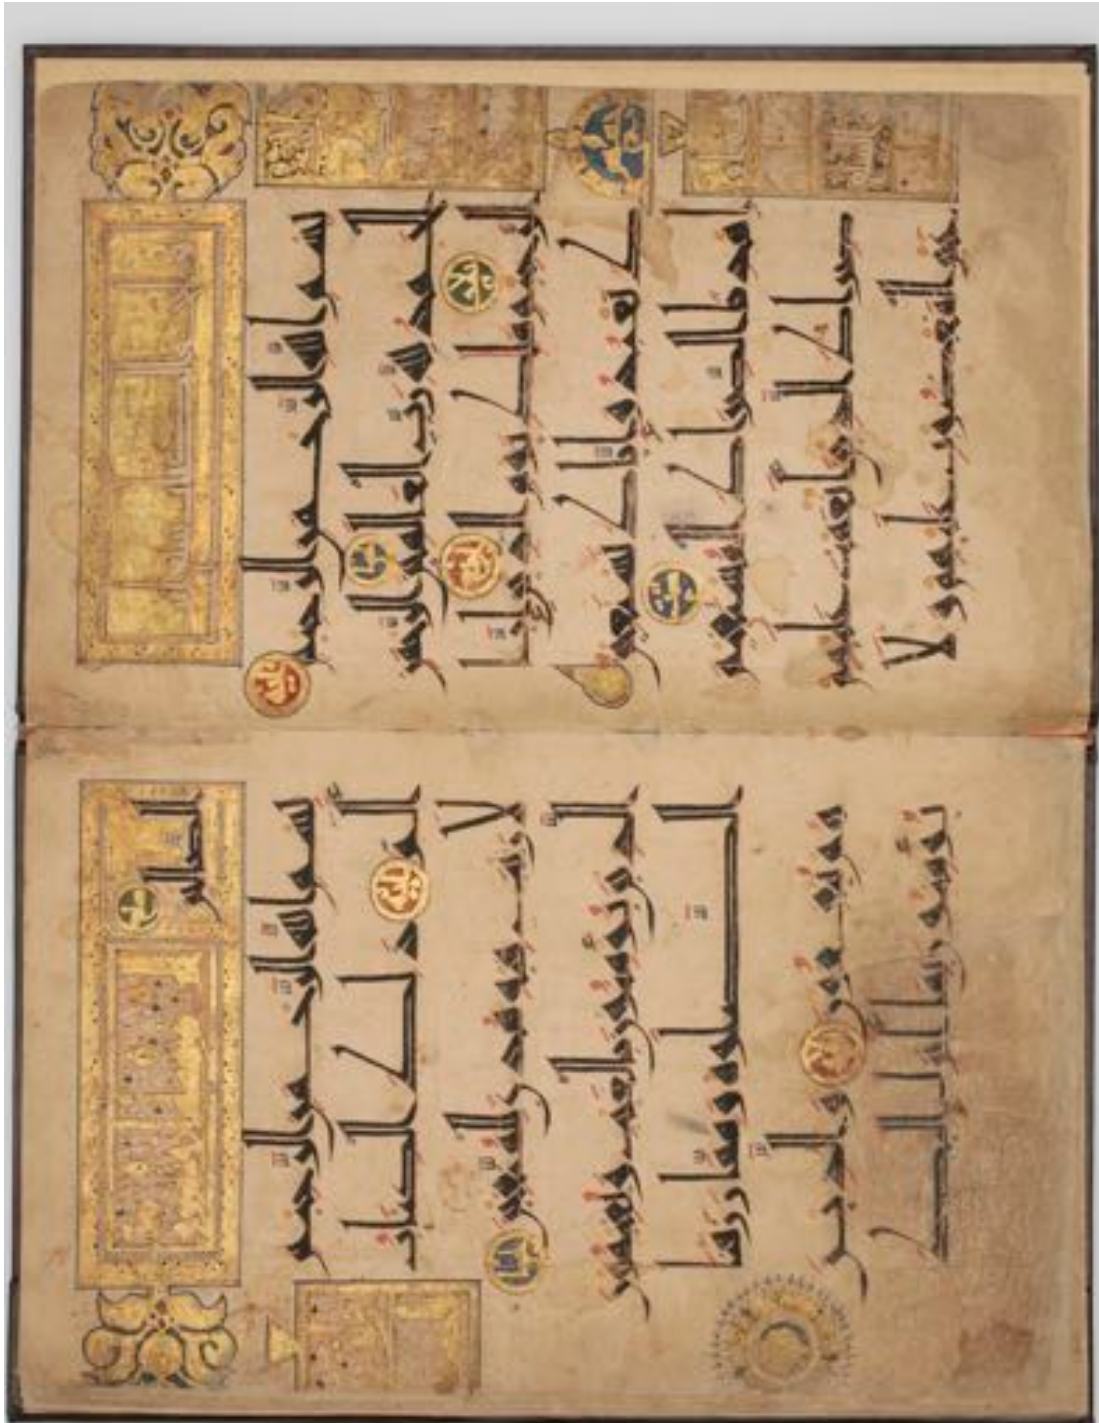 بسم الله الرحمن الرحيم
الحمد لله رب العلمين الرحمن
الرحيم ملك يوم الدين ايا
ك نعبد واياك نستعين
اهدنا الصراط المستقيم
صراط الذين انعمت عليهم
غير المغضوب عليهم ولا
الضالين
بسم الله الرحمن الرحيم
الم ذلك الكتاب
لا ريب فيه هدى للمتقين
الذين يؤمنون بالغيب ويقيمون
الصلوة ومما رزقنا
هم ينفقون والذين
يؤمنون بما انزل اليك